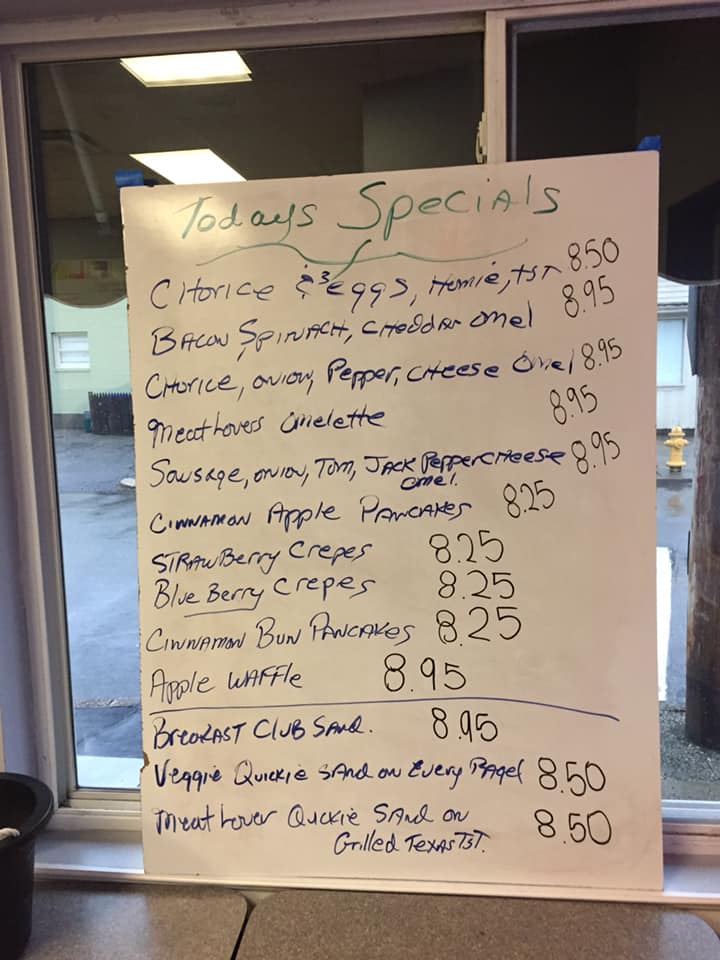 Todays Specials
CHorice & 3 eggs, Homie, TST 8.50
BACON, SPINACH, CHeDDAR Omel 8.95
CHorice, onion, Pepper, CHeese Omel 8.95
Meat Lovers Omelette 8.95
Sausage, onion, Tom, JACK PepperCHeese 8.95
omel.
CINNAMON Apple PANCAKes 8.25
STRAWBerry Crepes 8.25
Blue Berry Crepes 8.25
CINNAMON BUN PANCAKes 8.25
Apple WAFFle 8.95
BreaKAST CluB SAnd. 8.95
Veggie Quickie SAnd on Every BAgel 8.50
Meat Lover Quckie SAnd on 8.50
Grilled TexasTST.